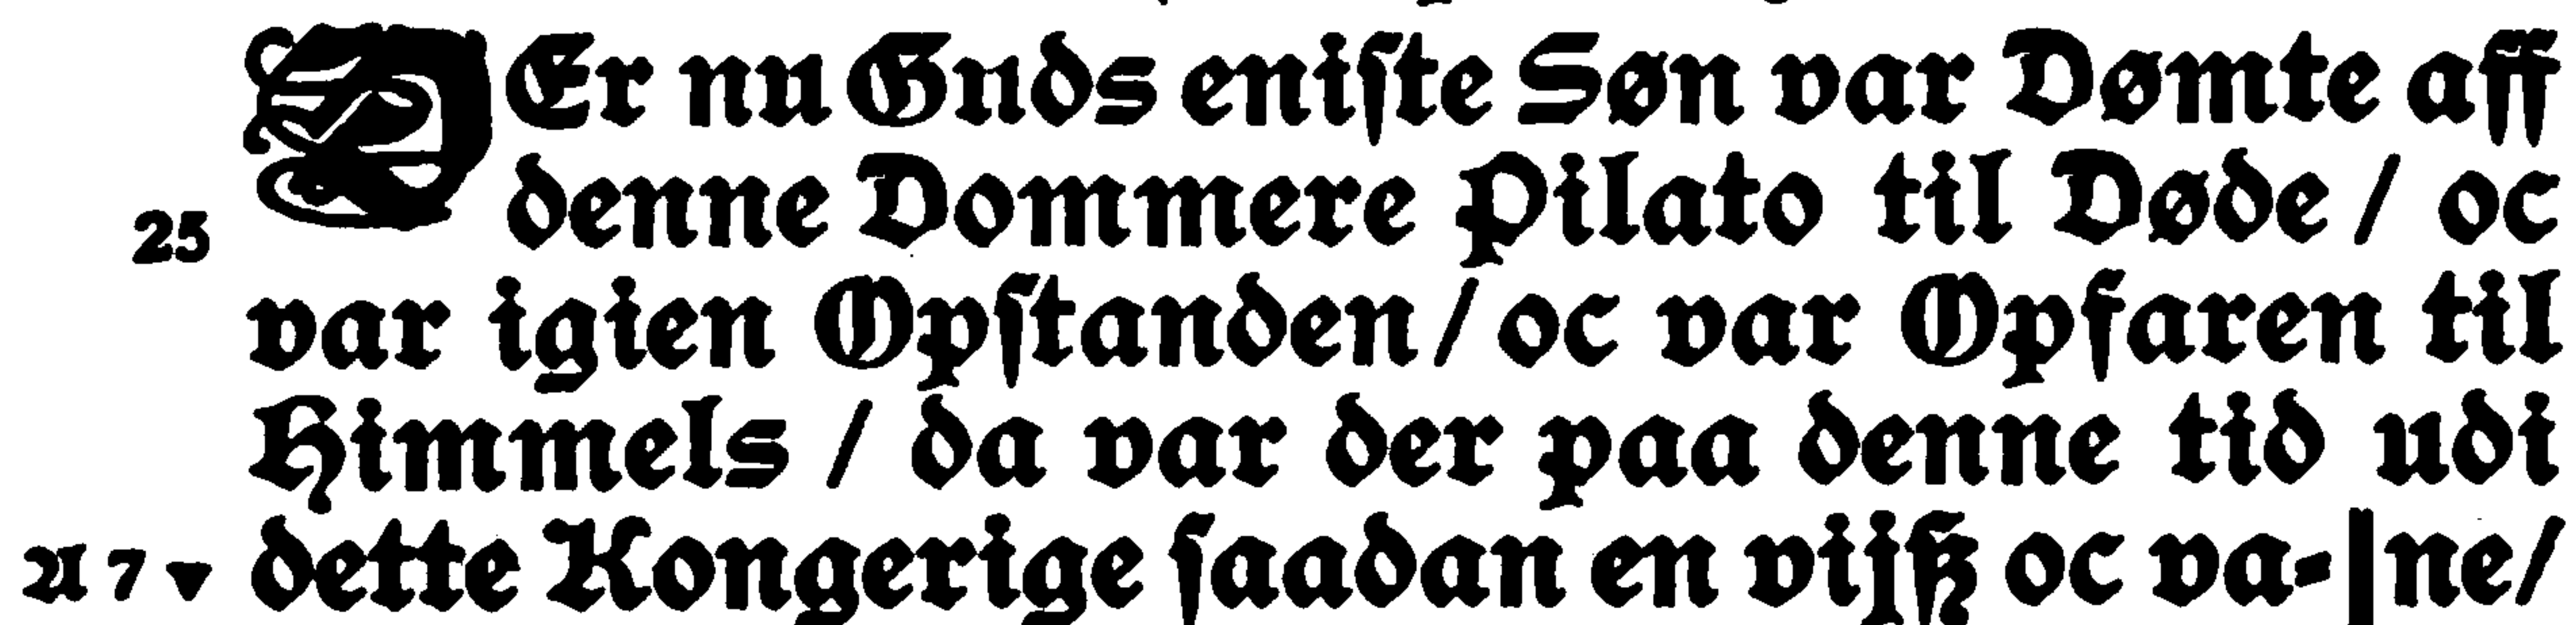 DEr nu Gnds eniſte Søn var Dømte aff
denne Dommere Pilato til Døde / oc
25
var igien Opſtanden / oc var Opfaren til
Himmels / da var der paa denne tid udi
A 7 ▾ dette Kongerige ſaadan en vijß oc va-|ne/